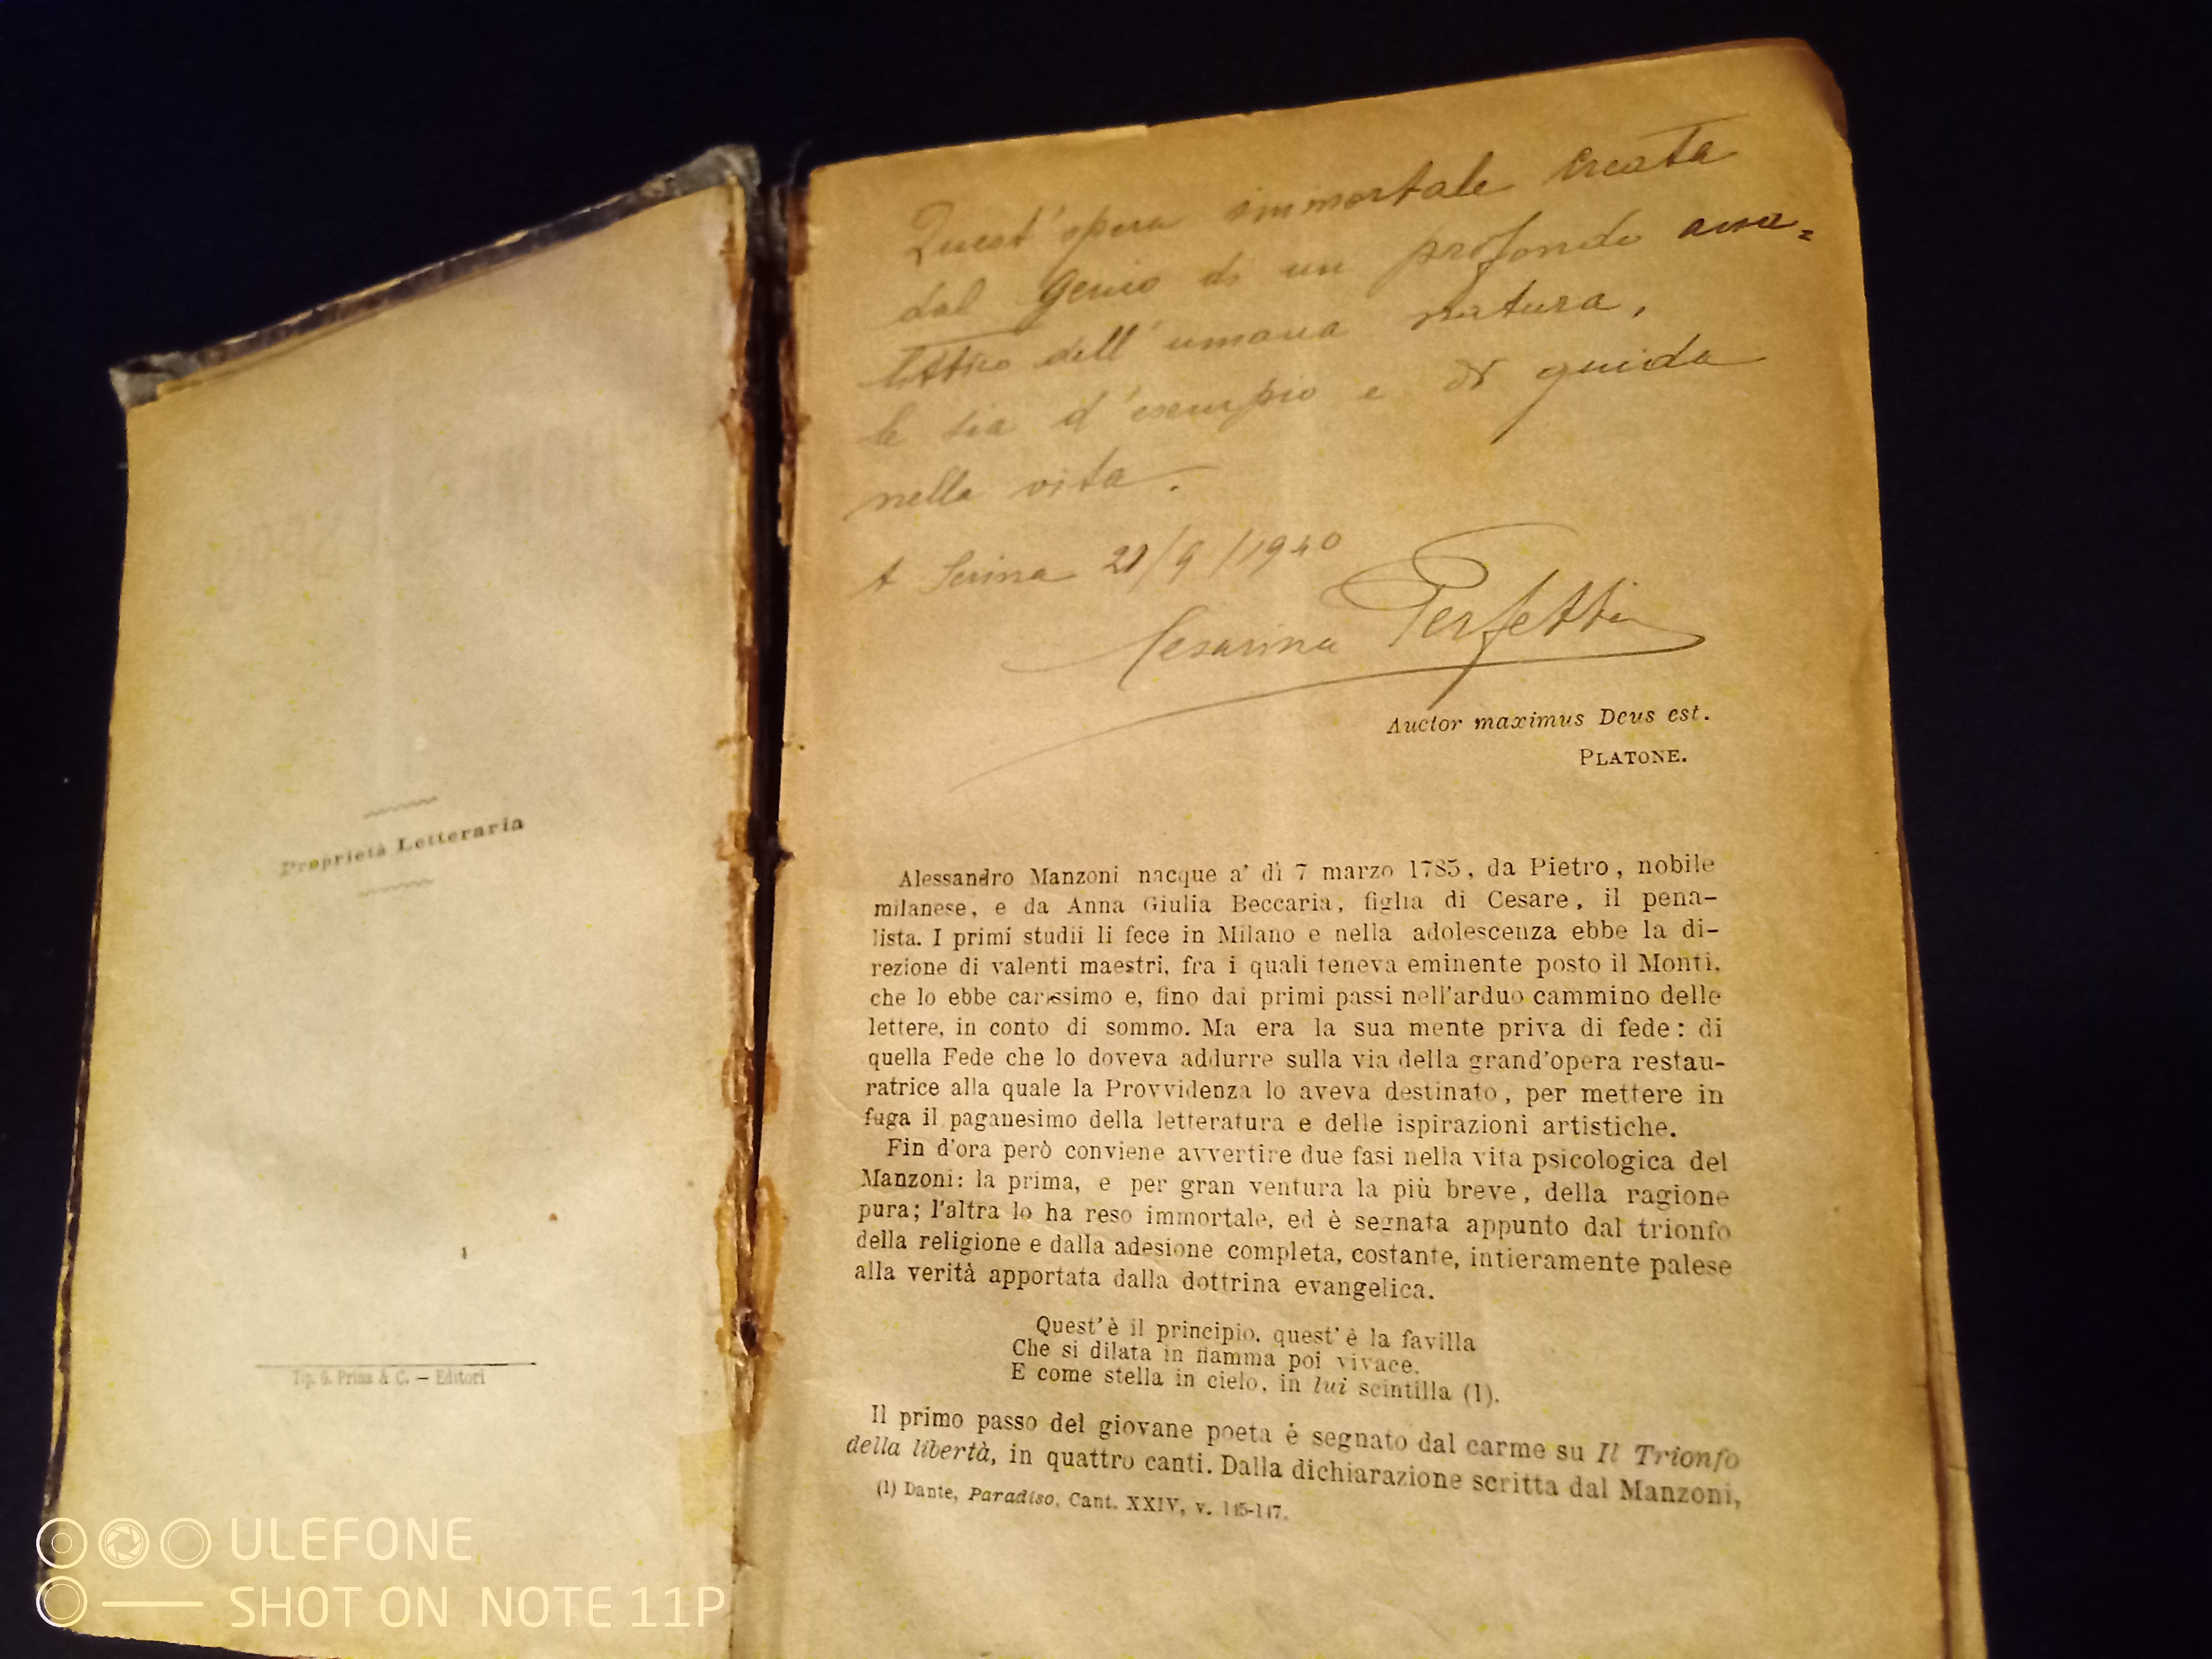 Proprietà Letteraria
Tip. G. Prina & C. — Editori
Quest'opera immortale creata
dal genio di un profondo ana=
litico dell'umana natura,
le sia d'esempio e di guida
nella vita.
A Serina 21/9/1940
Cesarina Perfetti
Auctor maximus Deus est.
PLATONE.
Alessandro Manzoni nacque a' dì 7 marzo 1785, da Pietro, nobile
milanese, e da Anna Giulia Beccaria, figlia di Cesare, il pena-
lista. I primi studii li fece in Milano e nella adolescenza ebbe la di-
rezione di valenti maestri, fra i quali teneva eminente posto il Monti,
che lo ebbe carissimo e, fino dai primi passi nell'arduo cammino delle
lettere, in conto di sommo. Ma era la sua mente priva di fede: di
quella Fede che lo doveva addurre sulla via della grand'opera restau-
ratrice alla quale la Provvidenza lo aveva destinato, per mettere in
fuga il paganesimo della letteratura e delle ispirazioni artistiche.
Fin d'ora però conviene avvertire due fasi nella vita psicologica del
Manzoni: la prima, e per gran ventura la più breve, della ragione
pura; l'altra lo ha reso immortale, ed è segnata appunto dal trionfo
della religione e dalla adesione completa, costante, intieramente palese
alla verità apportata dalla dottrina evangelica.
Quest'è il principio, quest'è la favilla
Che si dilata in fiamma poi vivace,
E come stella in cielo, in lui scintilla (1).
Il primo passo del giovane poeta è segnato dal carme su Il Trionfo
della libertà, in quattro canti. Dalla dichiarazione scritta dal Manzoni,
(1) Dante, Paradiso, Cant. XXIV, v. 145-147.
ULEFONE
SHOT ON NOTE 11P